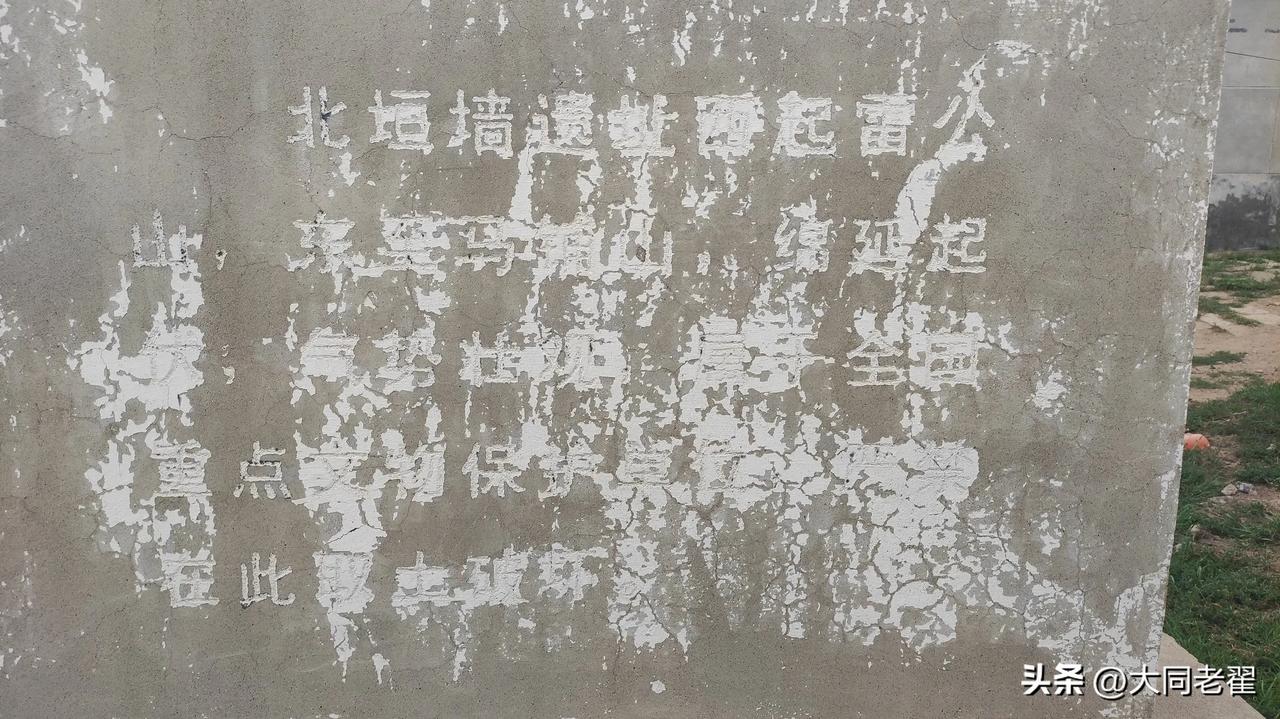 北垣墙遗址西起雷公
山 东至马铺山 绵延起
伏 气势壮观 属于全国
重点文物保护单位
在此取土破坏
头条 @大同老翟